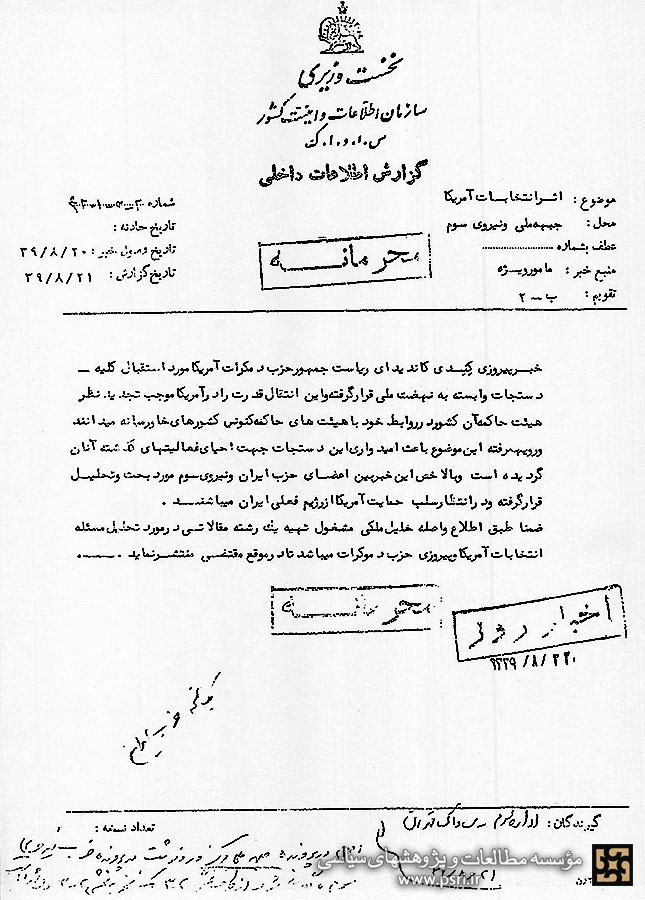 نخست وزیری
سازمان اطلاعات و امنیت کشور
س.ا.و.ا.ک
گزارش اطلاعات داخلی
موضوع : اثر انتخابات آمریکا
محل : جبهه ملی و نیروی سوم
عطف بشماره
منبع خبر : مامور ویژه
تقویم : ب - ۲
شماره
تاریخ حادثه :
تاریخ وصول خبر : ۳۹/۸/۲۰
تاریخ گزارش : ۳۹/۸/۲۱
محرمانه
خبر پیروزی کندی کاندیدای ریاست جمهور حزب دمکرات آمریکا مورد استقبال کلیه -
دستجات وابسته به نهضت ملی قرار گرفته و این انتقال قدرت را در آمریکا موجب تجدید نظر
هیئت حاکمه آن کشور در روابط خود با هیئت های حاکمه کنونی کشورهای خاورمیانه میدانند
و رویهمرفته این موضوع باعث امیدواری این دستجات جهت احیای فعالیتهای گذشته آنان
گردیده است و بالاخص این خبر بین اعضای حزب ایران و نیروی سوم مورد بحث و تحلیل
قرار گرفته و در انتظار سلب حمایت آمریکا از رژیم فعلی ایران میباشند .
ضمنا طبق اطلاع واصله خلیل ملکی مشغول تهیه یک رشته مقالاتی در مورد تحلیل مسئله
انتخابات آمریکا و پیروزی حزب دموکرات میباشد تا در موقع مقتضی منتشر نماید .
محرمانه
اخبار روز
۱۳۳۹/۸/۲۲
گیرندگان : اداره کل سوم
تعداد نسخه :
مؤسسه مطالعات و پژوهشهای سیاسی
www.psri.ir